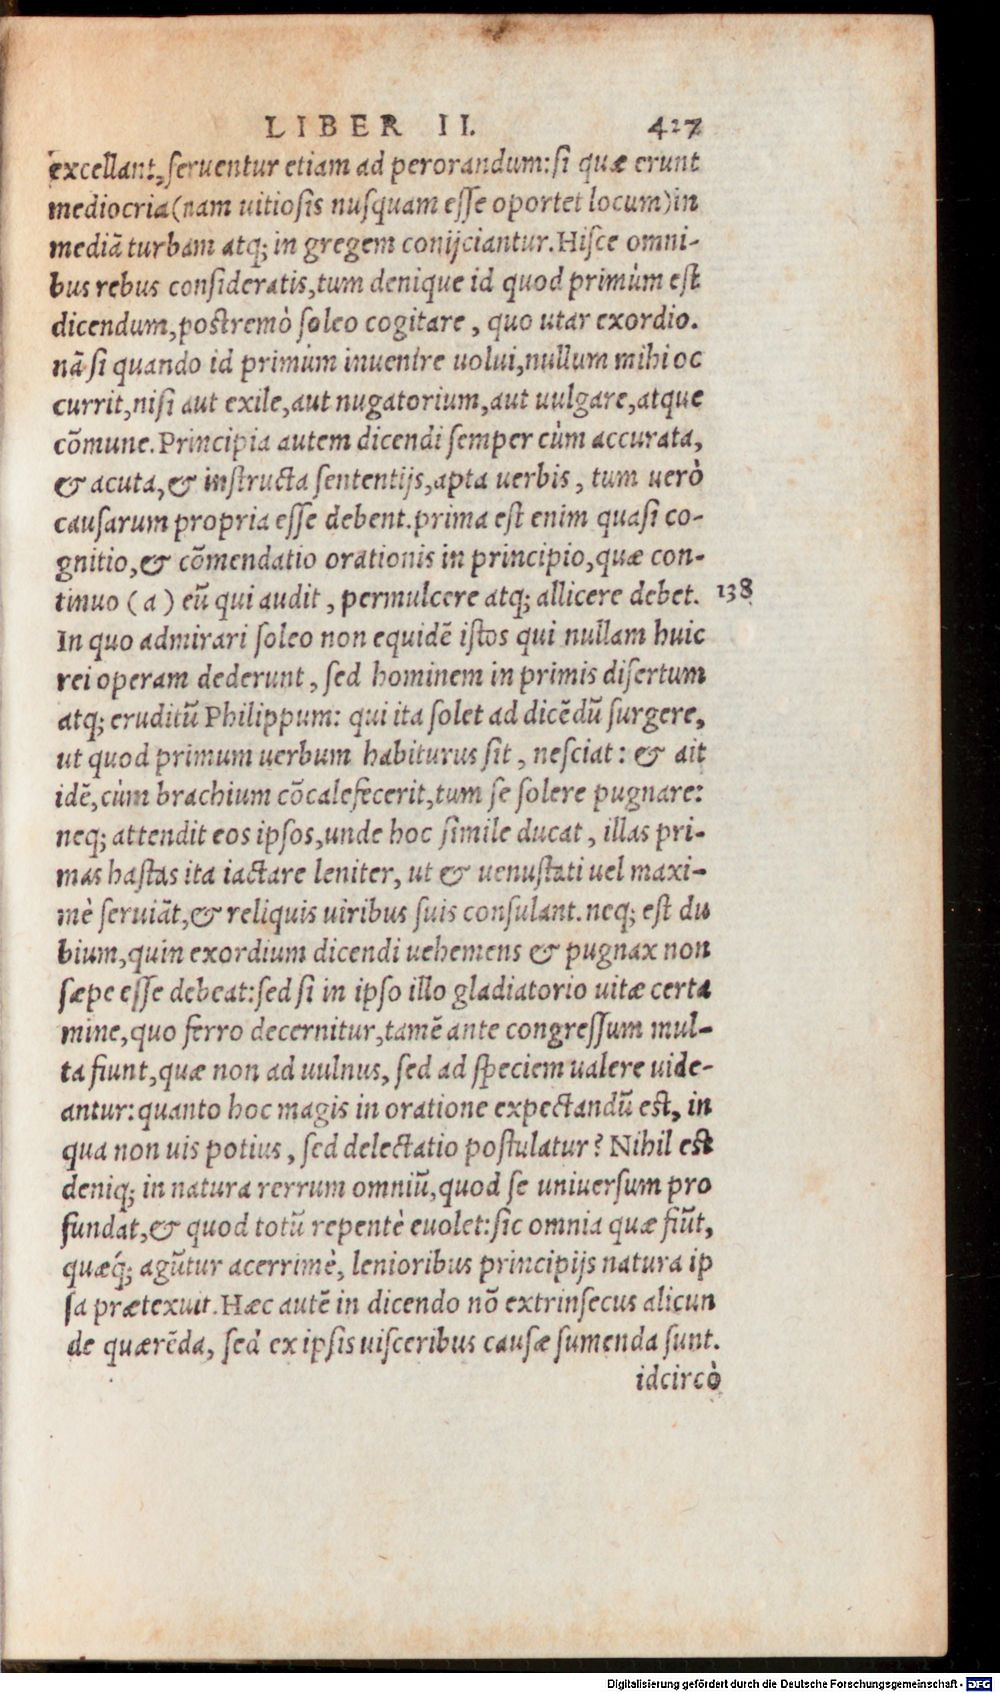 LIBER II. 427
excellant, ſeruentur etiam ad perorandum: ſi quæ erunt
mediocria (nam uitioſis nuſquam eſſe oportet locum) in
mediā turbam atq; in gregem conijciantur. Hiſce omni-
bus rebus conſideratis, tum denique id quod primùm eſt
dicendum, poſtremò ſoleo cogitare, quo utar exordio.
nā ſi quando id primùm inuenire uolui, nullum mihi oc
currit, niſi aut exile, aut nugatorium, aut uulgare, atque
cōmune. Principia autem dicendi ſemper cùm accurata,
& acuta, & inſtructa ſententijs, apta uerbis, tum uerò
cauſarum propria eſſe debent. prima eſt enim quaſi co-
gnitio, & cōmendatio orationis in principio, quæ con-
tinuo (a) eū qui audit, permulcere atq; allicere debet. 138
In quo admirari ſoleo non equidē iſtos qui nullam huic
rei operam dederunt, ſed hominem in primis diſertum
atq; eruditū Philippum: qui ita ſolet ad dicēdū ſurgere,
ut quod primum uerbum habiturus ſit, neſciat: & ait
idē, cùm brachium cōcalefecerit, tum ſe ſolere pugnare:
neq; attendit eos ipſos, unde hoc ſimile ducat, illas pri-
mas haſtas ita iactare leniter, ut & uenuſtati uel maxi-
mè ſeruiāt, & reliquis uiribus ſuis conſulant. neq; eſt du
bium, quin exordium dicendi uehemens & pugnax non
ſæpe eſſe debeat: ſed ſi in ipſo illo gladiatorio uitæ certa
mine, quo ferro decernitur, tamē ante congreſſum mul-
ta fiunt, quæ non ad uulnus, ſed ad ſpeciem ualere uide-
antur: quanto hoc magis in oratione expectandū eſt, in
qua non uis potius, ſed delectatio poſtulatur? Nihil eſt
deniq; in natura rerrum omniū, quod ſe uniuerſum pro
fundat, & quod totū repentè euolet: ſic omnia quæ fiūt,
quæq́; agūtur acerrimè, lenioribus principijs natura ip
ſa prætexuit. Hæc autē in dicendo nō extrinſecus alicun
de quærēda, ſed ex ipſis uiſceribus cauſæ ſumenda ſunt.
idcircò
Digitalisierung gefördert durch die Deutsche Forschungsgemeinschaft - DFG